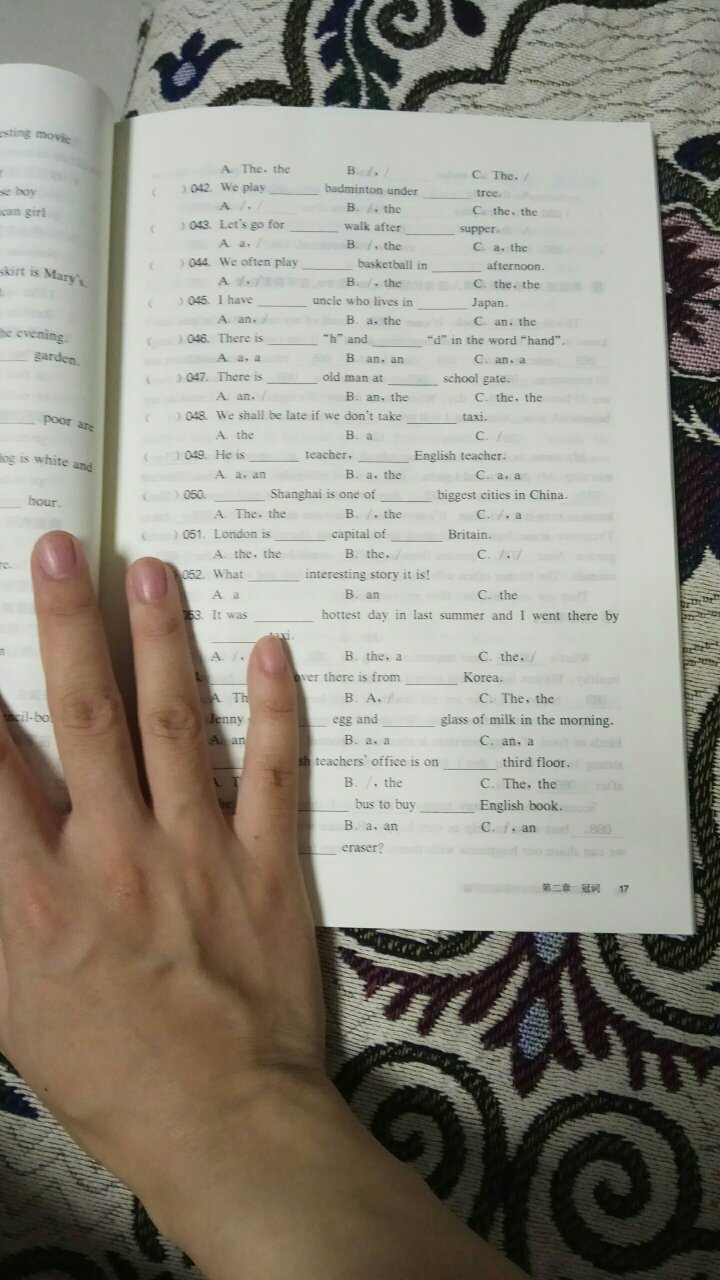 esting movie
se boy
ican girl
skirt is Mary's.
he evening.
garden.
poor are
dog is white and
hour.
A. The, the B. /, / C. The, /
( ) 042. We play ______ badminton under ______ tree.
A. /, / B. /, the C. the, the
( ) 043. Let's go for ______ walk after ______ supper.
A. a, / B. /, the C. a, the
( ) 044. We often play ______ basketball in ______ afternoon.
A. /, / B. /, the C. the, the
( ) 045. I have ______ uncle who lives in ______ Japan.
A. an, / B. a, the C. an, the
( ) 046. There is ______ “h” and ______ “d” in the word “hand”.
A. a, a B. an, an C. an, a
( ) 047. There is ______ old man at ______ school gate.
A. an, / B. an, the C. the, the
( ) 048. We shall be late if we don't take ______ taxi.
A. the B. a C. /
( ) 049. He is ______ teacher, ______ English teacher.
A. a, an B. a, the C. a, a
( ) 050. ______ Shanghai is one of ______ biggest cities in China.
A. The, the B. /, the C. /, a
( ) 051. London is ______ capital of ______ Britain.
A. the, the B. the, / C. /, /
) 052. What ______ interesting story it is!
A. a B. an C. the
53. It was ______ hottest day in last summer and I went there by
______ taxi.
A. /, B. the, a C. the, /
over there is from ______ Korea.
A. Th B. A, / C. The, the
Jenny egg and ______ glass of milk in the morning.
A. an B. a, a C. an, a
sh teachers' office is on ______ third floor.
A. T B. /, the C. The, the
he ______ bus to buy ______ English book.
B. a, an C. /, an
______ eraser?
第二章 冠词 17